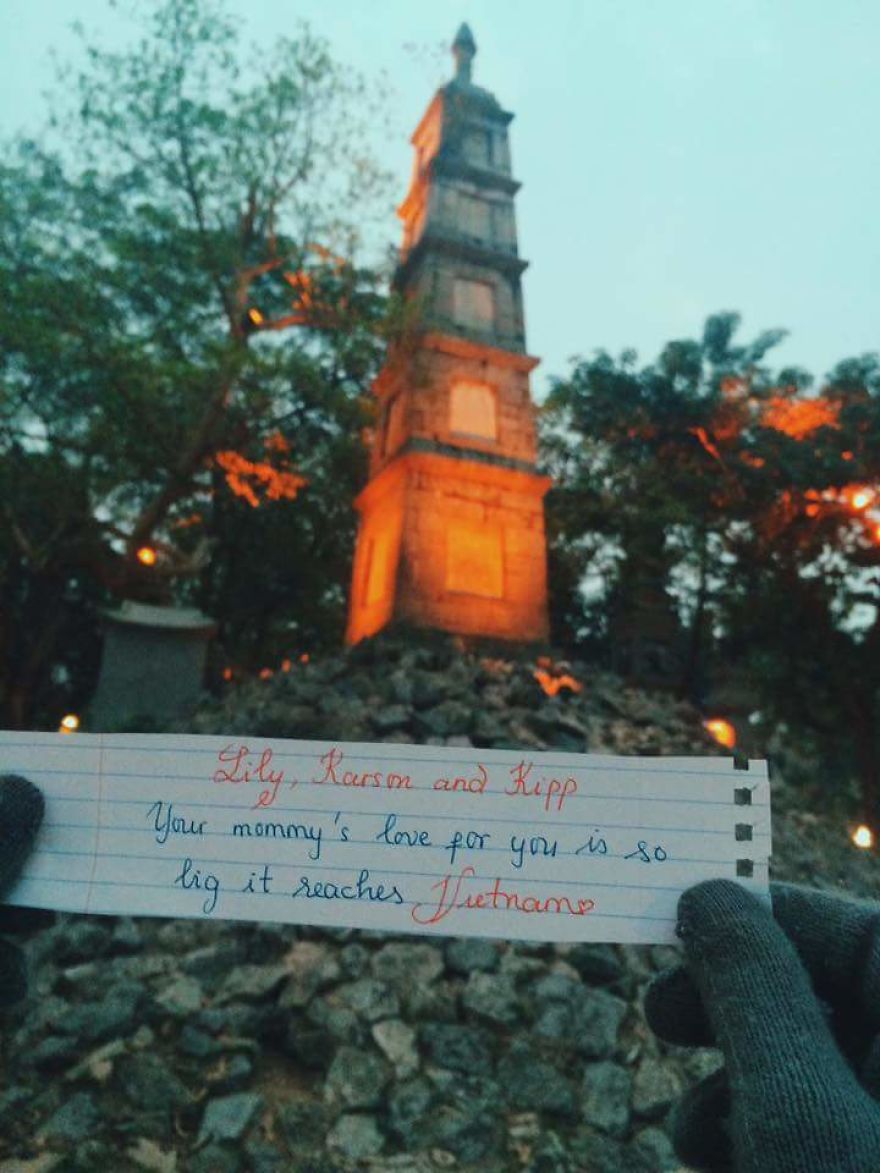 Lily, Karson and Kipp
Your mommy's love for you is so
big it reaches Vietnam